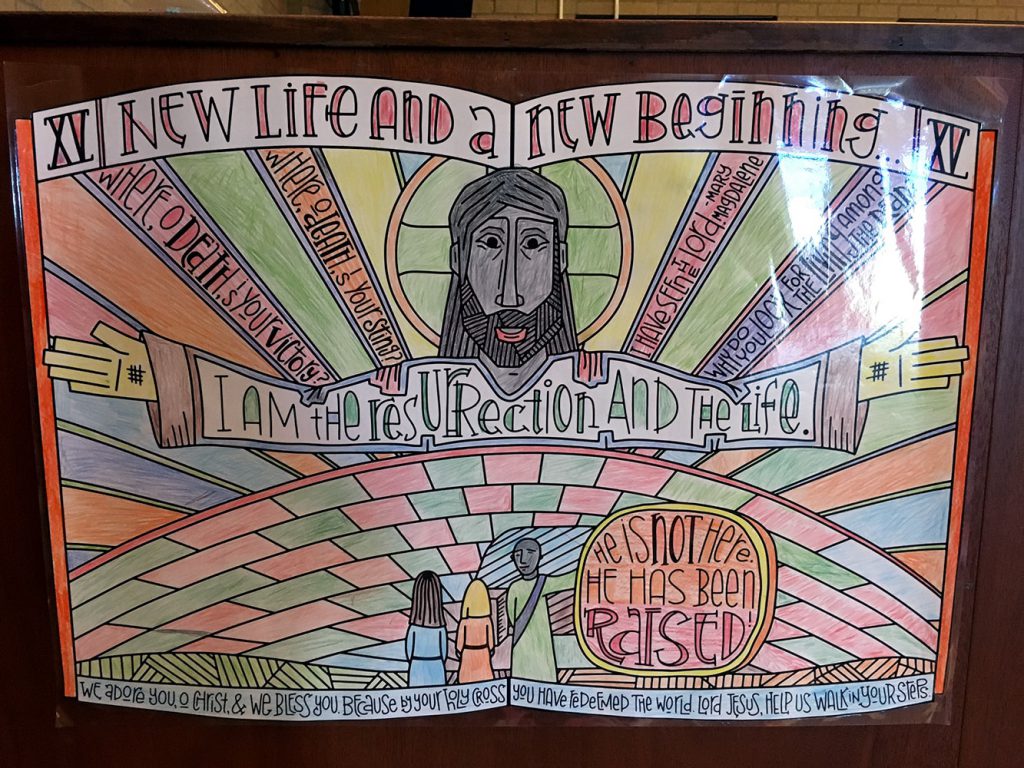 XV NEW LIFE AND a NEW BEGINNING... XV
WHERE, O DEATH, IS YOUR VICTORY?
WHERE, O DEATH, IS YOUR STING?
I HAVE SEEN THE LORD -MARY
MAGDALENE
WHY DO YOU LOOK FOR THE LIVING AMONG THE DEAD?
I AM THE RESURRECTION AND THE LIFE.
HE IS NOT HERE.
HE HAS BEEN
RAISED!
WE ADORE YOU, O CHRIST, & WE BLESS YOU, BECAUSE BY YOUR HOLY CROSS YOU HAVE REDEEMED THE WORLD. LORD JESUS, HELP US WALK IN YOUR STEPS.